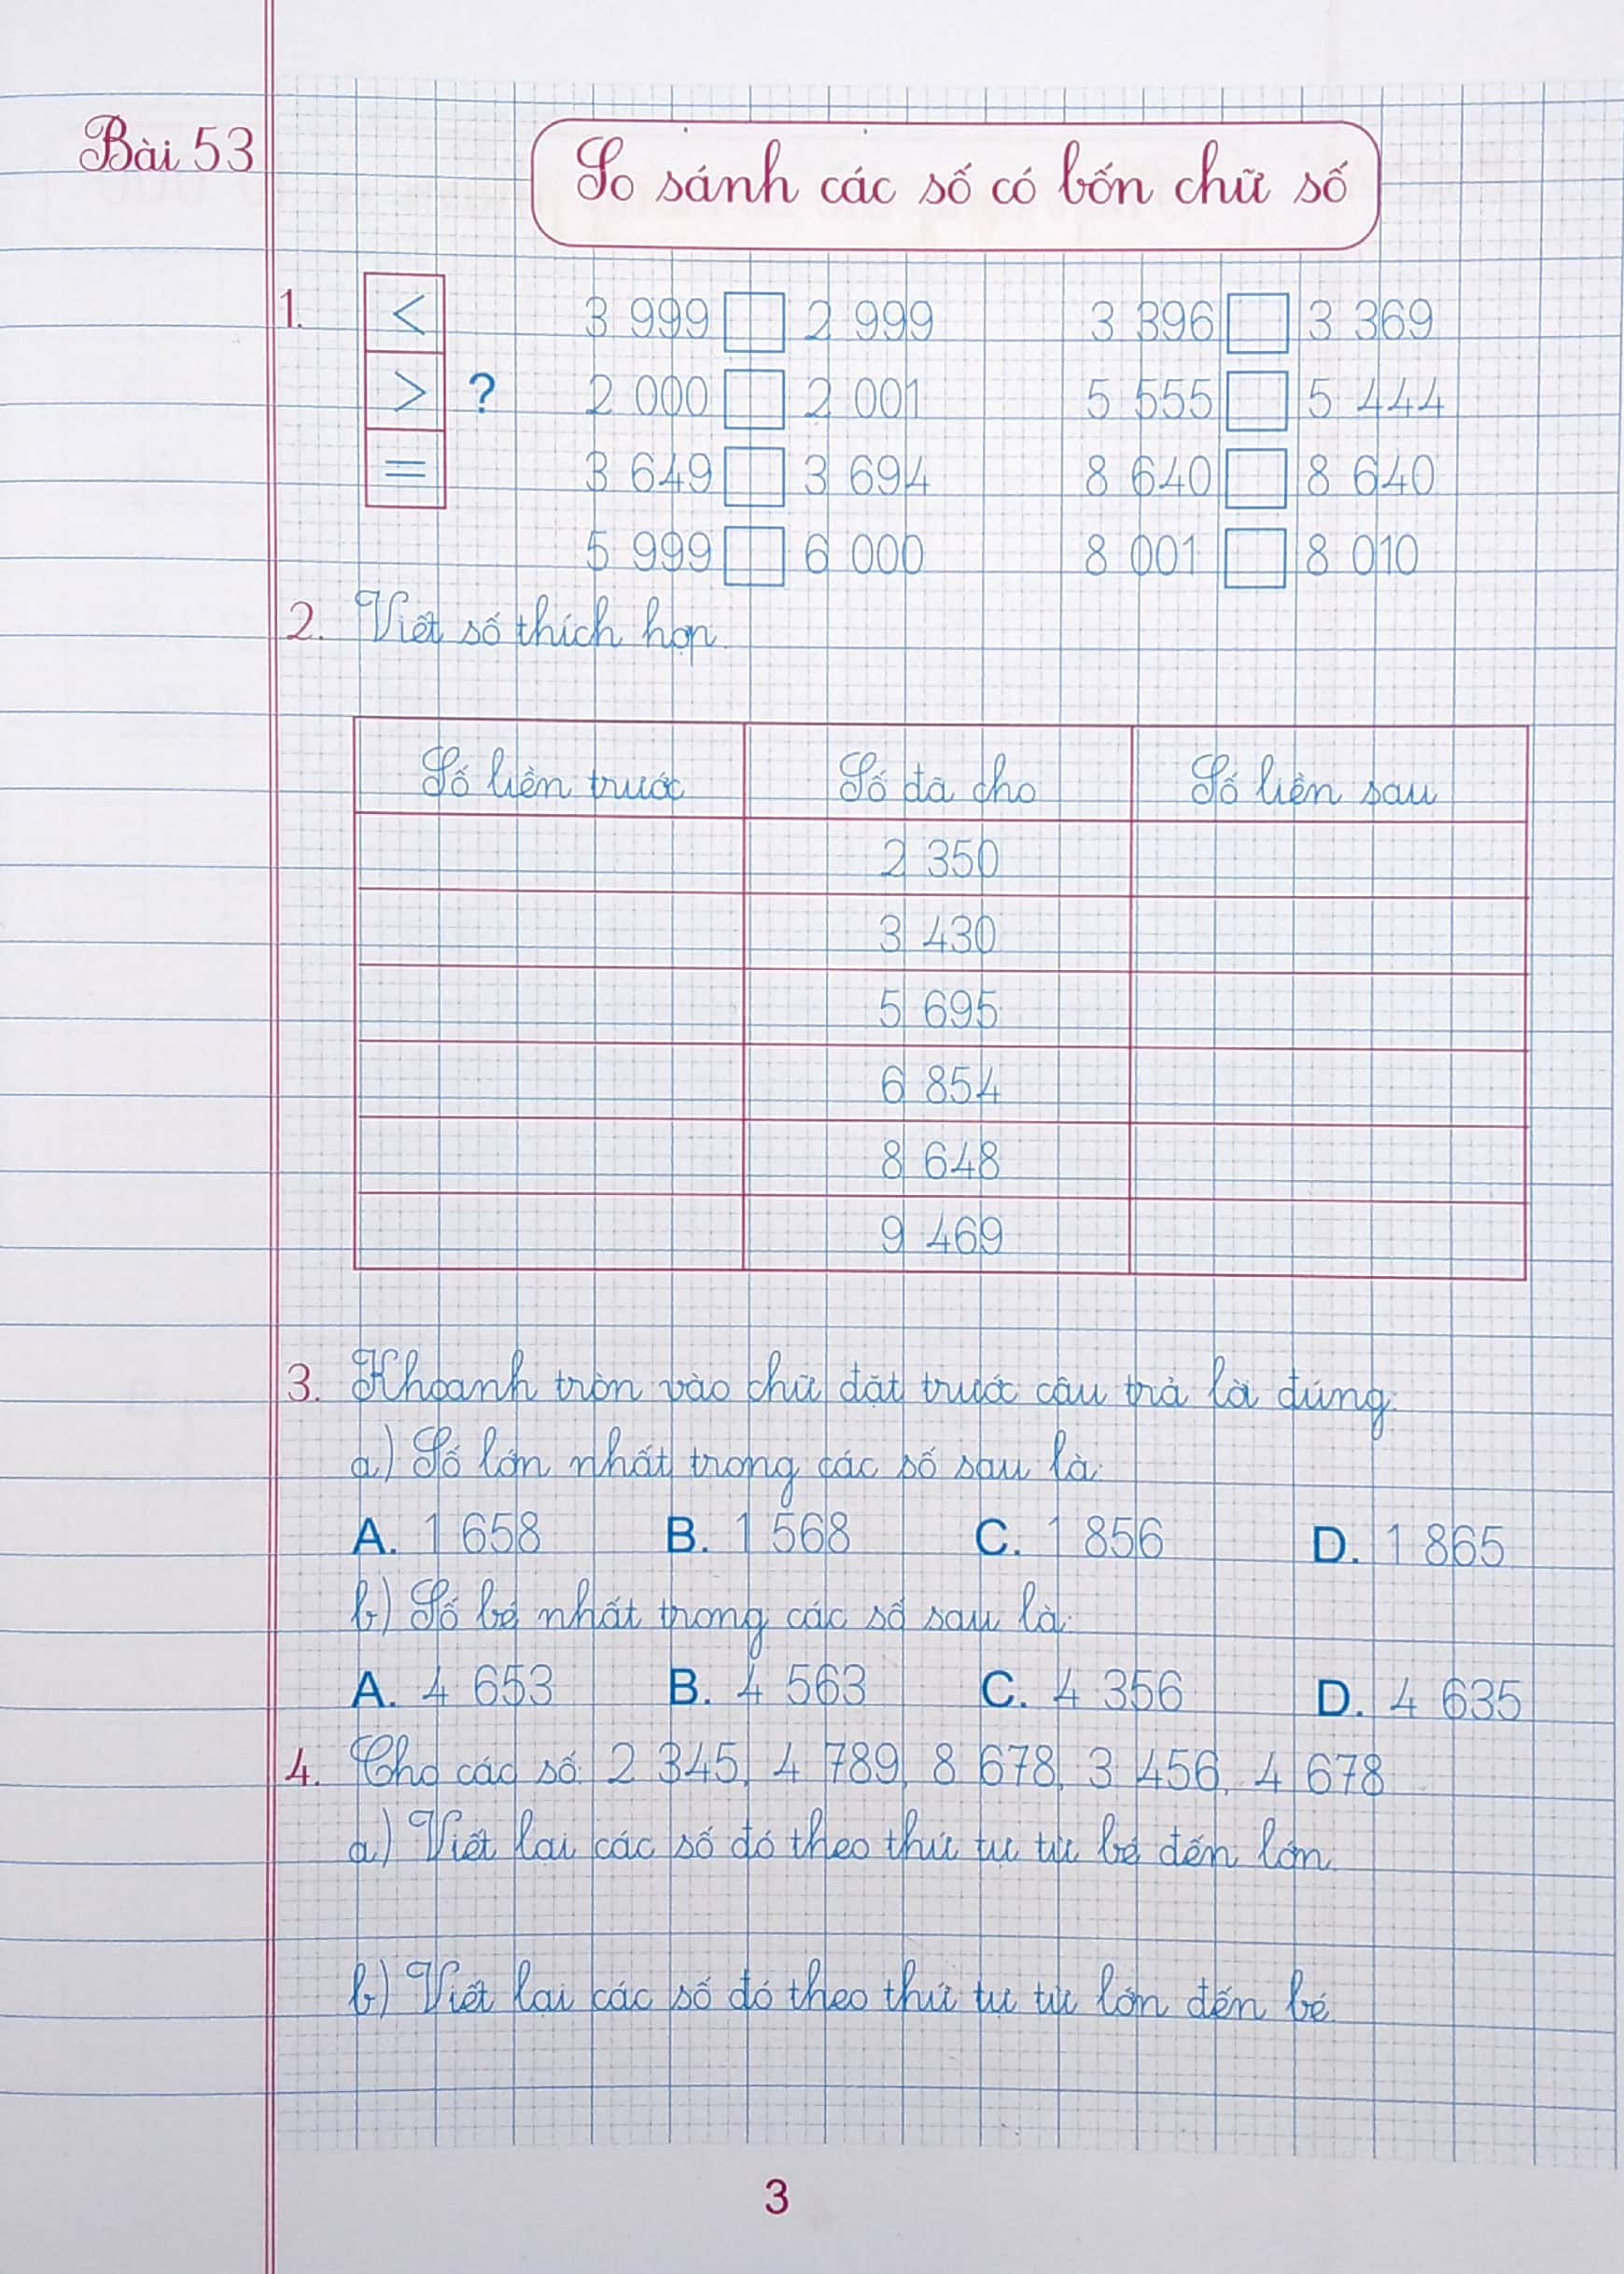 Bài 53
So sánh các số có bốn chữ số
1. < 3 999 □ 2 999 3 396 □ 3 369
> ? 2 000 □ 2 001 5 555 □ 5 444
= 3 649 □ 3 694 8 640 □ 8 640
5 999 □ 6 000 8 001 □ 8 010
2. Viết số thích hợp.
Số liền trước Số đã cho Số liền sau
2 350
3 430
5 695
6 854
8 648
9 469
3. Khoanh tròn vào chữ đặt trước câu trả lời đúng.
a) Số lớn nhất trong các số sau là:
A. 1 658 B. 1 568 C. 1 856 D. 1 865
b) Số bé nhất trong các số sau là:
A. 4 653 B. 4 563 C. 4 356 D. 4 635
4. Cho các số: 2 345, 4 789, 8 678, 3 456, 4 678
a) Viết lại các số đó theo thứ tự từ bé đến lớn.
b) Viết lại các số đó theo thứ tự từ lớn đến bé.
3